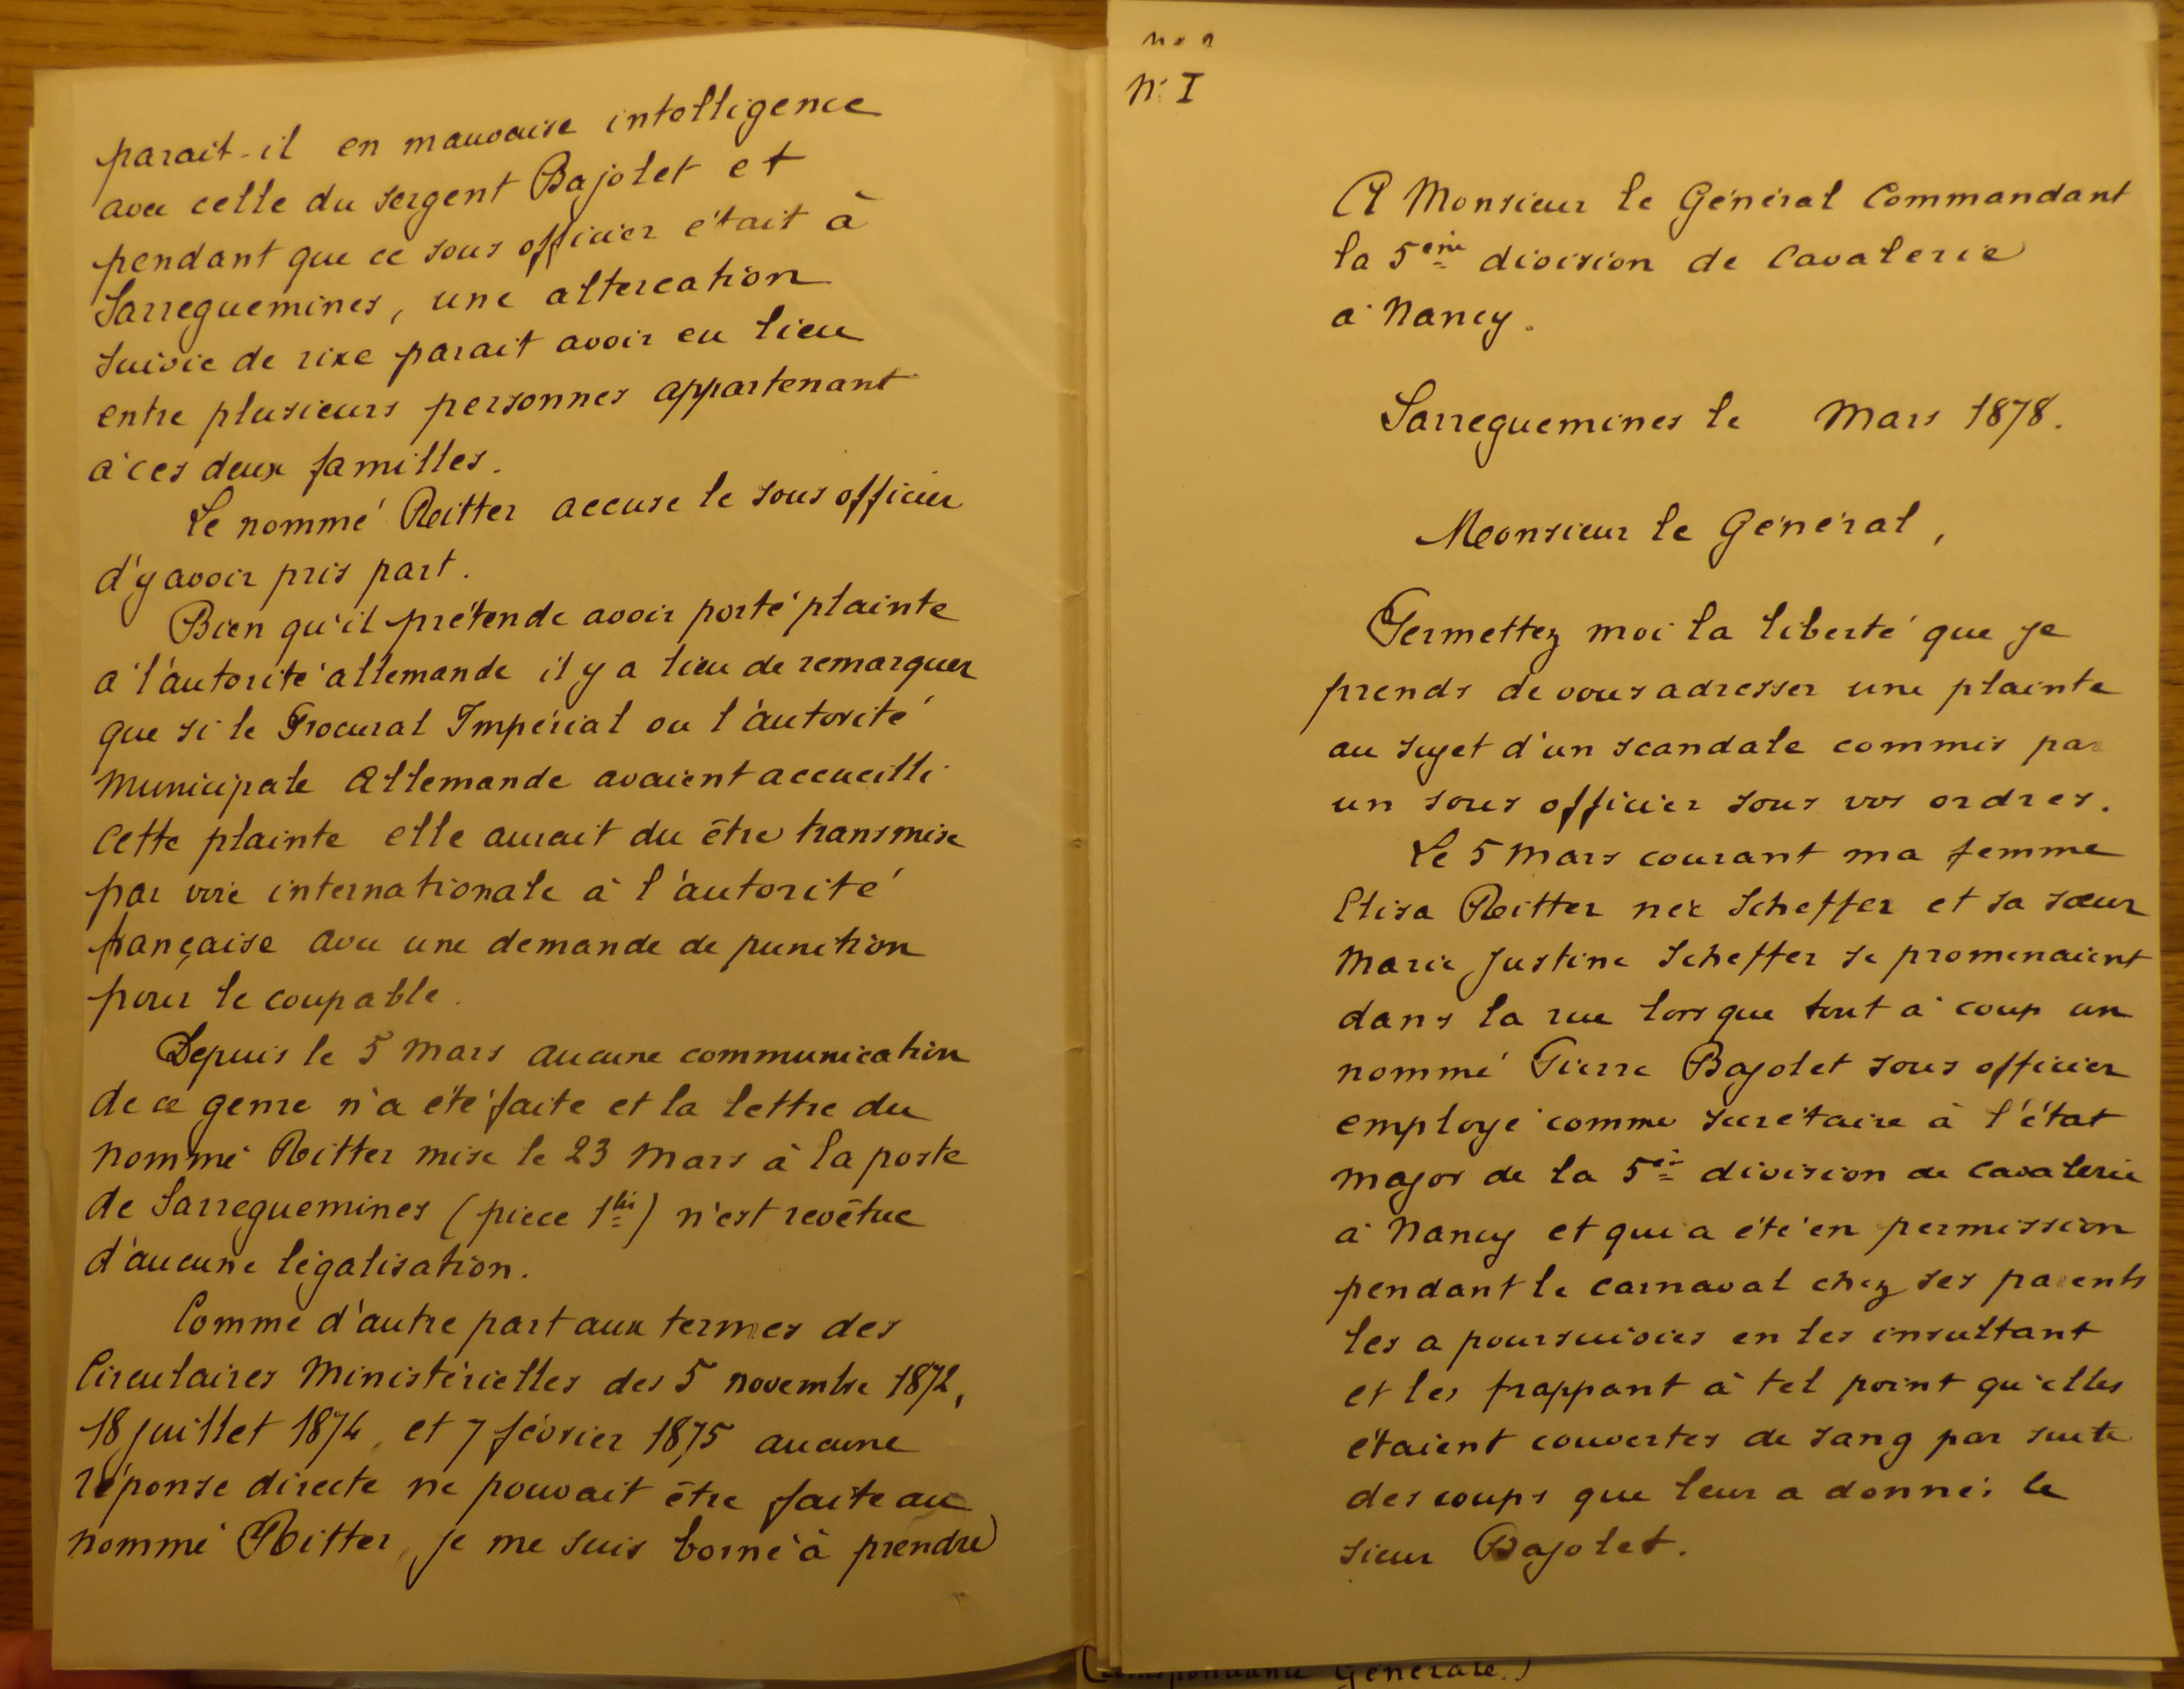 parait-il en mauvaise intelligence
avec celle du sergent Bajolet et
pendant que ce sous officier était à
Sarreguemines, une altercation
suivie de rixe parait avoir eu lieu
entre plusieurs personnes appartenant
à ces deux familles.
Le nommé Reitter accuse le sous officier
d'y avoir pris part.
Bien qu'il prétende avoir porté plainte
à l'autorité allemande il y a lieu de remarquer
que si le Procural Impérial ou l'autorité
Municipale Allemande avaient accueilli
cette plainte elle aurait du être transmise
par voie internationale à l'autorité
française avec une demande de punition
pour le coupable.
Depuis le 5 Mars aucune communication
de ce genre n'a été faite et la lettre du
nommé Reitter mise le 23 Mars à la poste
de Sarreguemines (pièce 1bis) n'est revêtue
d'aucune légalisation.
Comme d'autre part aux termes des
Circulaires Ministérielles des 5 novembre 1872,
18 juillet 1874, et 7 février 1875 aucune
réponse directe ne pouvait être faite au
nommé Reitter, je me suis borné à prendre
N: I
A Monsieur le Général Commandant
la 5eme division de Cavalerie
à Nancy.
Sarreguemines le Mars 1878.
Monsieur le Général,
Permettez moi la liberté que je
prends de vous adresser une plainte
au sujet d'un scandale commis par
un sous officier sous vos ordres.
Le 5 Mars courant ma femme
Elisa Reitter née Scheffer et sa sœur
Marie Justine Scheffer se promenaient
dans la rue lorsque tout à coup un
nommé Pierre Bajolet sous officier
employé comme secrétaire à l'état
major de la 5e division de Cavalerie
à Nancy et qui a été en permission
pendant le carnaval chez ses parents
les a poursuivies en les insultant
et les frappant à tel point qu'elles
étaient couvertes de sang par suite
des coups que leur a donnés le
sieur Bajolet.
Générale.)